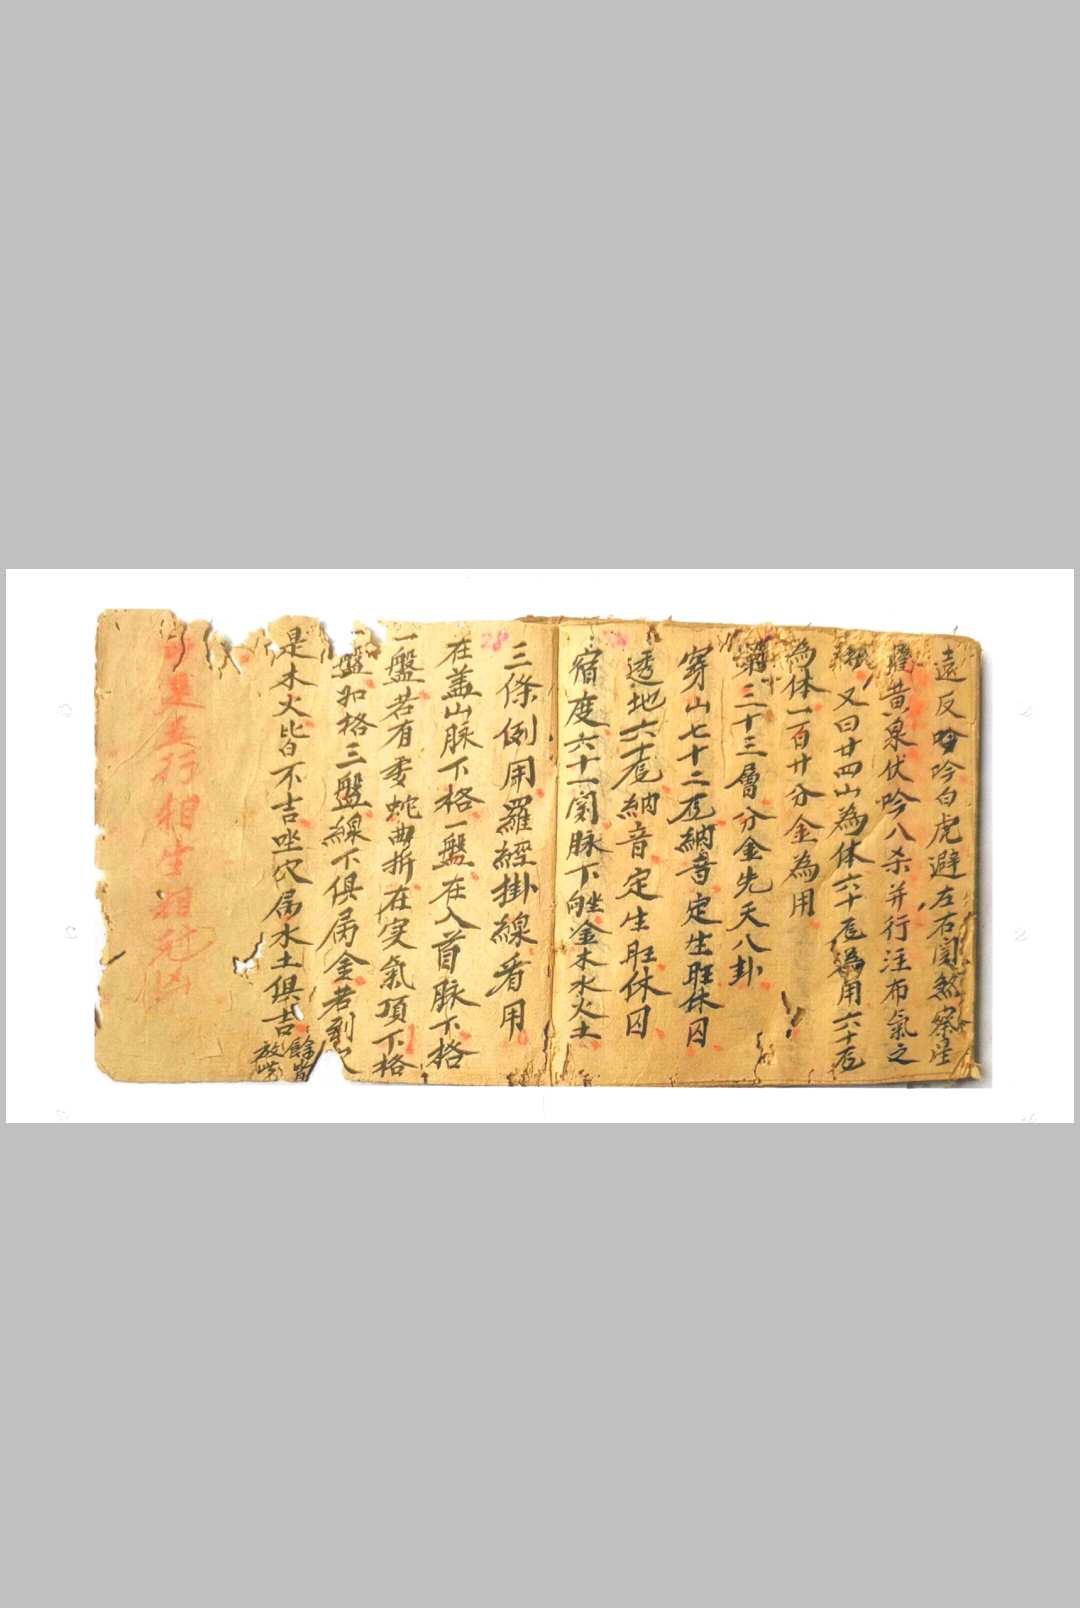 遠反吟吟白虎避左右関煞察
黄泉伏吟八杀并行注布氣之
又曰廿四山為体六十尨為用六十尨
為体一百廿分金為用
第三十三層分金先天八卦
穿山七十二尨納音定生旺休囚
透地六十尨納音定生旺休囚
宿度六十一関脉下坐金木水火土
三條例用羅經掛線看用
在盖山脉下格一盤在入首脉下格
一盤若有委蛇曲折在突氣頂下格
一盤如格三盤線下俱属金若到
是木火皆不吉唑穴属水土俱吉
餘皆
放此
星五行相生相尅凶
28